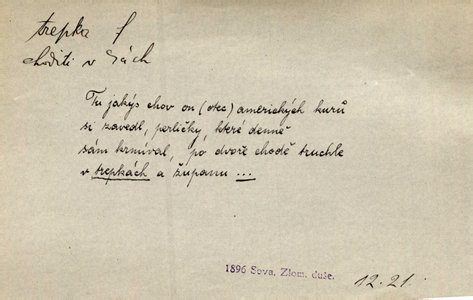 trepka f
choditi v -ách
Tu jakýs chov on (otec) amerických kurů
si zavedl, perličky, které denně
sám krmíval, po dvoře chodě truchle
v trepkách a županu ...
1896 Sova, Zlom. duše.
12.21.